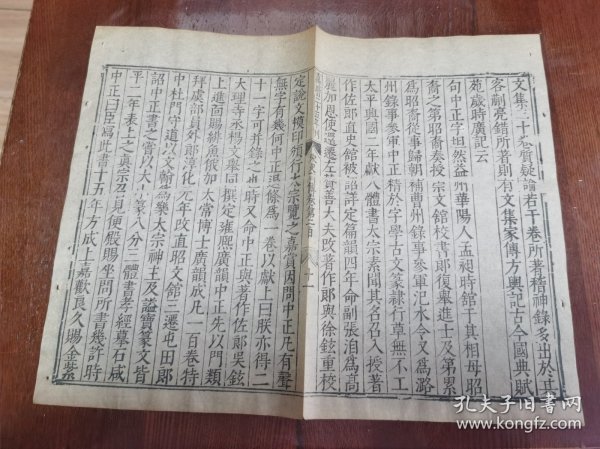 文集三十卷質疑論若干卷所著稽神錄多出於其
客蒯亮錯所著則有文集家傳方輿記古今國典賦
苑歲時廣記云
句中正字坦然益州華陽人孟昶時館于其相毋昭
裔之第昭裔奏授崇文館校書郎復舉進士及第累
爲昭裔從事歸朝補曹州錄事參軍汜水令又爲潞
州錄事參軍中正精於字學古文篆隷行草無不工
太平興國二年獻八體書太宗素聞其名召入授著
作佐郎直史館被詔詳定篇韻四年命副張洎爲高
麗加恩使還遷左贊善大夫改著作郎與徐鉉重校
定說文模印頒行太宗覽之嘉賞因問中正凡有聲
無字有幾何中正退條爲一卷以獻上曰朕亦得二
十一字可并錄之也時又命中正與著作佐郎吳鉉
大理寺丞楊文舉同撰定雍熙廣韻中正先以門類
上進面賜緋魚俄加太常博士廣韻成凡一百卷特
拜虞部員外郎淳化元年改直昭文館三遷屯田郎
中杜門守道以文翰爲樂太宗神主及謚寶篆文皆
詔中正書之嘗以大小篆八分三體書孝經摹石咸
平三年表上之真宗召見便殿賜坐問所書幾許時
中正曰臣寫此書十五年方成上嘉歎良久賜金紫
孔夫子旧书网
www.kongfz.com